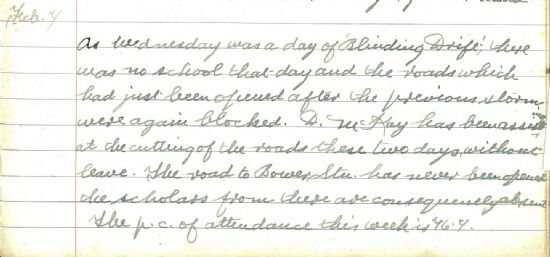 Feb. 4
As Wednesday was a day of 'Blinding Drift', there
was no school that day and the roads which
had just been opened after the previous storm
were again blocked. D. McKay has been assist
at the cutting of the roads these two days, without
leave. The road to Bower Stn. has never been opened
the scholars from there are consequently absent
The p.c. of attendance this week is 76.4.